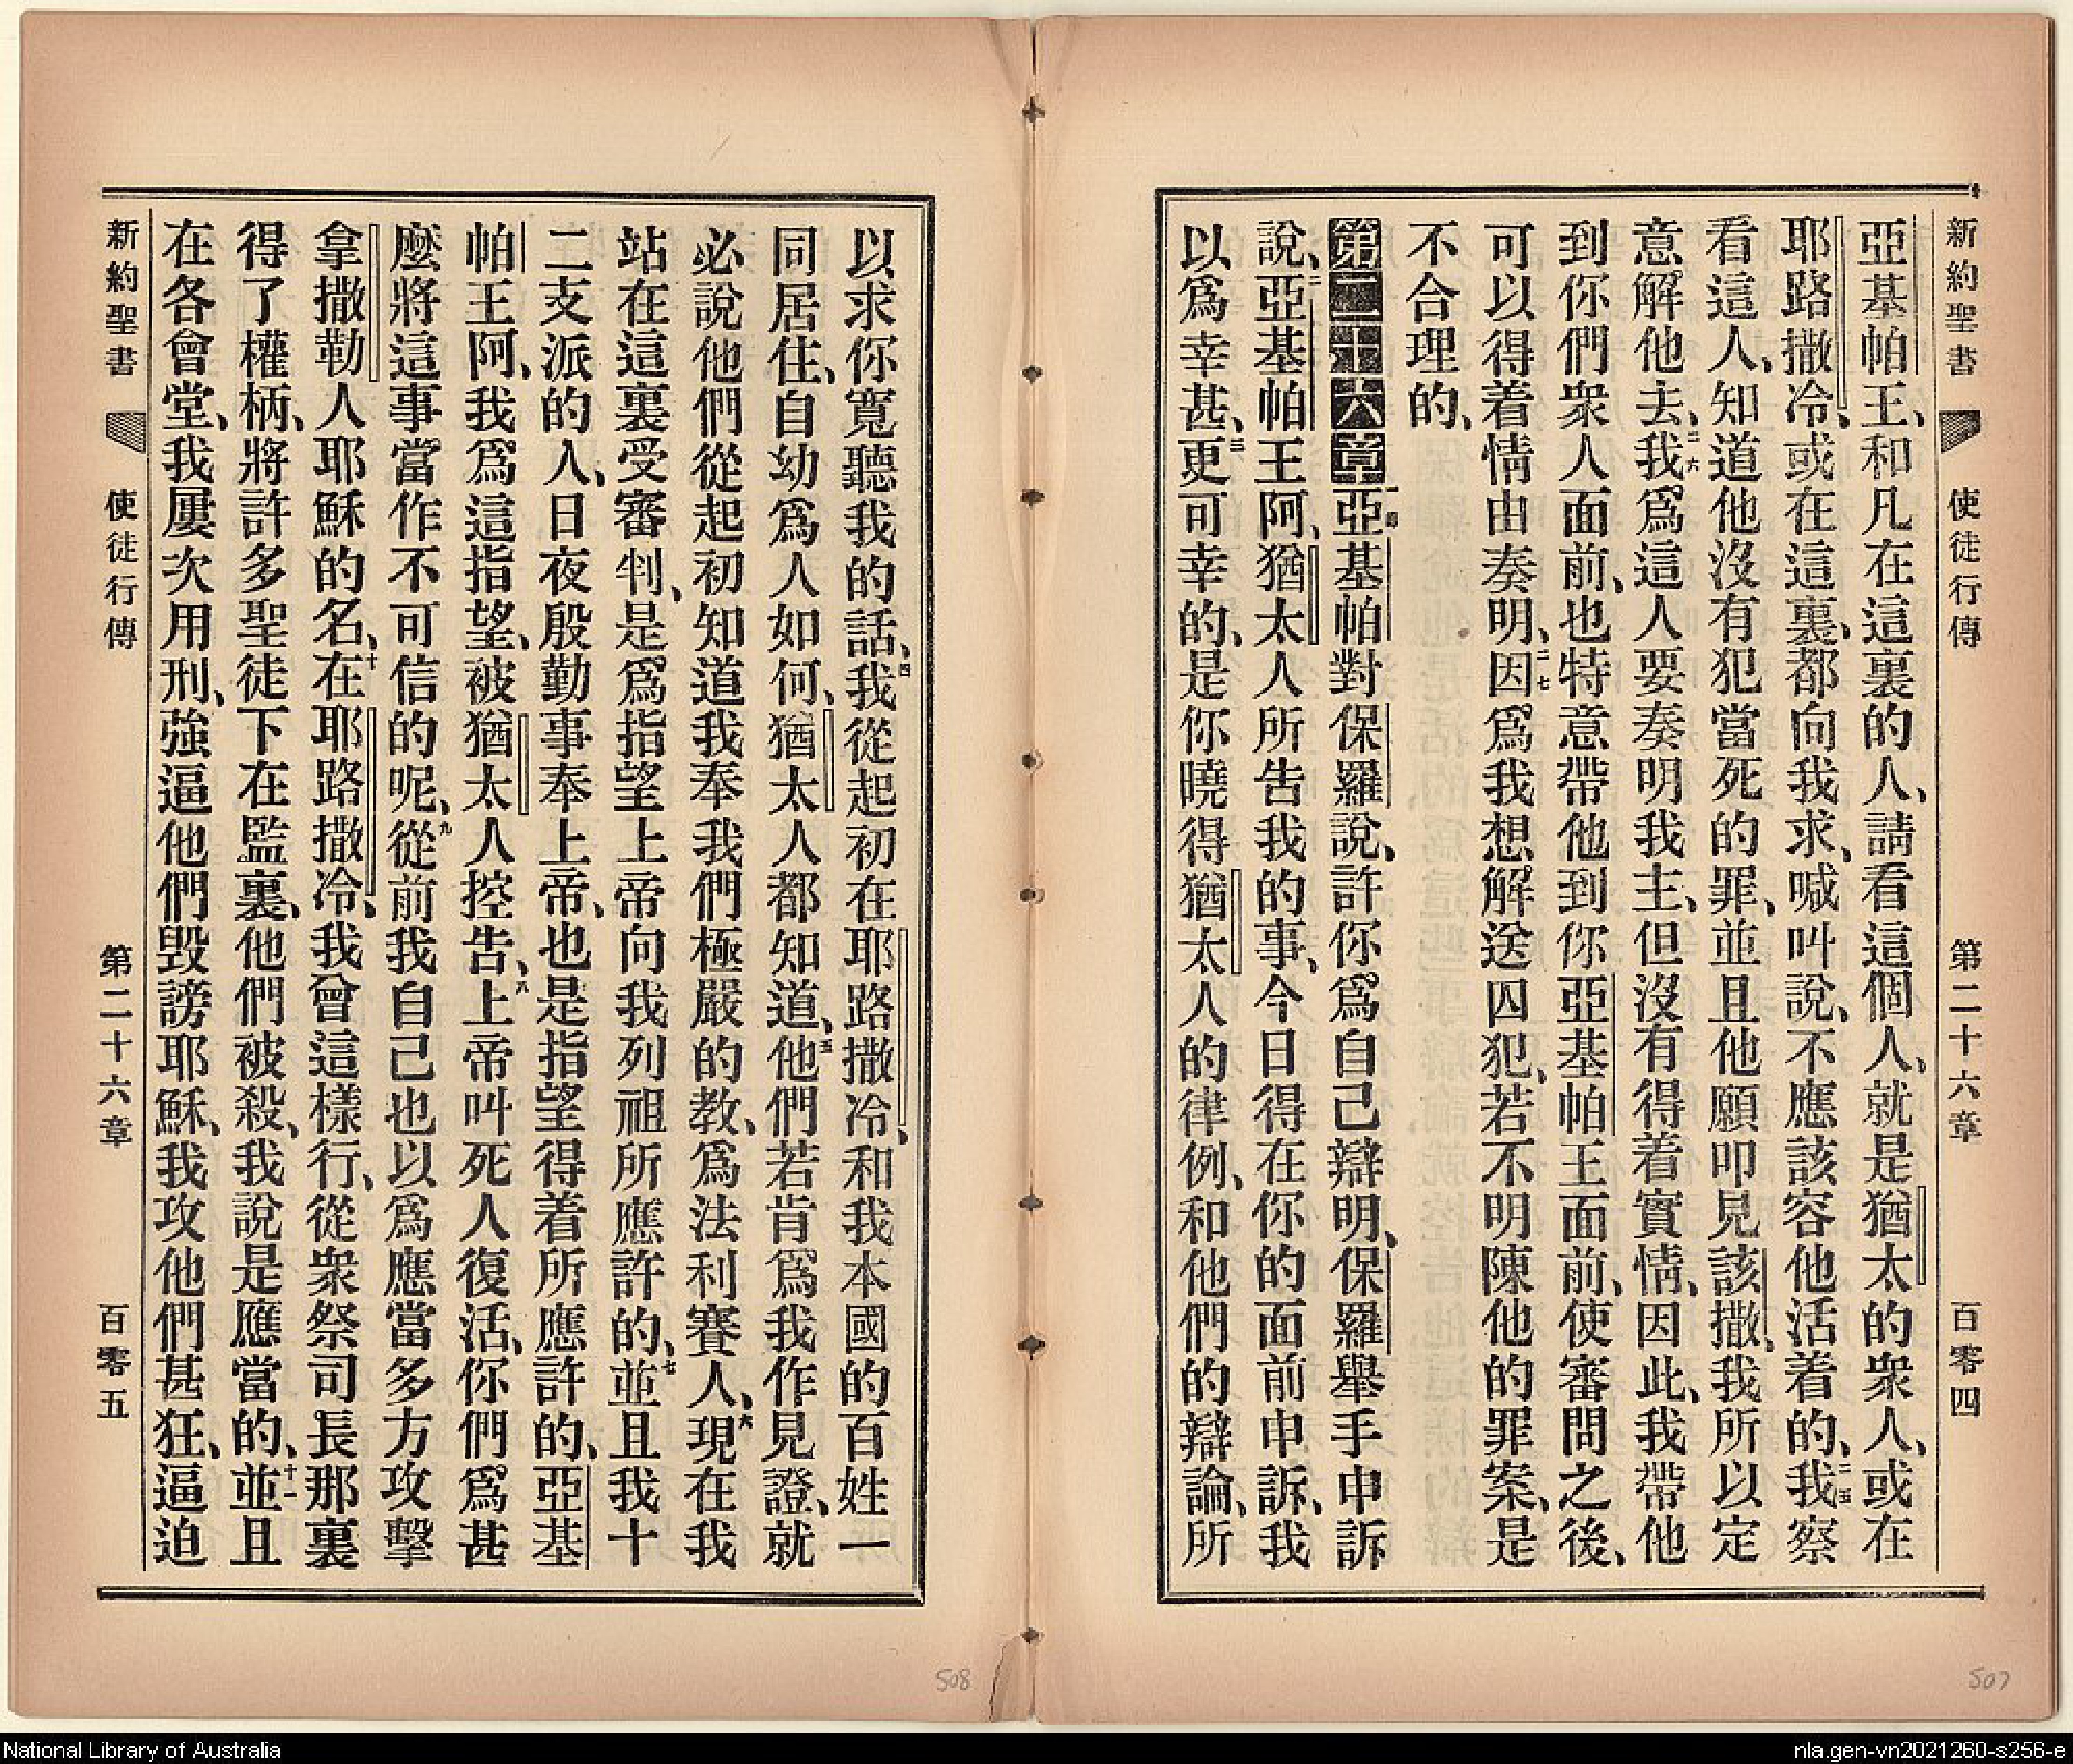 新約聖書 使徒行傳 第二十六章 百零四
亞基帕王、和凡在這裏的人、請看這個人、就是猶太的衆人、或在
耶路撒冷、或在這裏、都向我求、喊叫說、不應該容他活着的、二五我察
看這人、知道他沒有犯當死的罪、並且他願叩見該撒、我所以定
意解他去、二六我爲這人要奏明我主、但沒有得着實情、因此、我帶他
到你們衆人面前、也特意帶他到你亞基帕王面前、使審問之後、
可以得着情由奏明、二七因爲我想解送囚犯、若不明陳他的罪案、是
不合理的、
第二十六章 亞基帕對保羅說、許你爲自己辯明、保羅舉手申訴
說、二亞基帕王阿、猶太人所告我的事、今日得在你的面前申訴、我
以爲幸甚、三更可幸的、是你曉得猶太人的律例、和他們的辯論、所
以求你寬聽我的話、四我從起初在耶路撒冷、和我本國的百姓一
同居住、自幼爲人如何、猶太人都知道、五他們若肯爲我作見證、就
必說他們從起初知道我奉我們極嚴的教、爲法利賽人、六現在我
站在這裏受審判、是爲指望上帝向我列祖所應許的、七並且我十
二支派的人、日夜殷勤事奉上帝、也是指望得着所應許的、亞基
帕王阿、我爲這指望、被猶太人控告、八上帝叫死人復活、你們爲甚
麼將這事當作不可信的呢、九從前我自己也以爲應當多方攻擊
拿撒勒人耶穌的名、十在耶路撒冷、我曾這樣行、從衆祭司長那裏
得了權柄、將許多聖徒下在監裏、他們被殺、我說是應當的、十一並且
在各會堂、我屢次用刑、強逼他們毀謗耶穌、我攻他們甚狂、逼迫
新約聖書 使徒行傳 第二十六章 百零五
508
507
National Library of Australia
nla.gen-vn2021260-s256-e